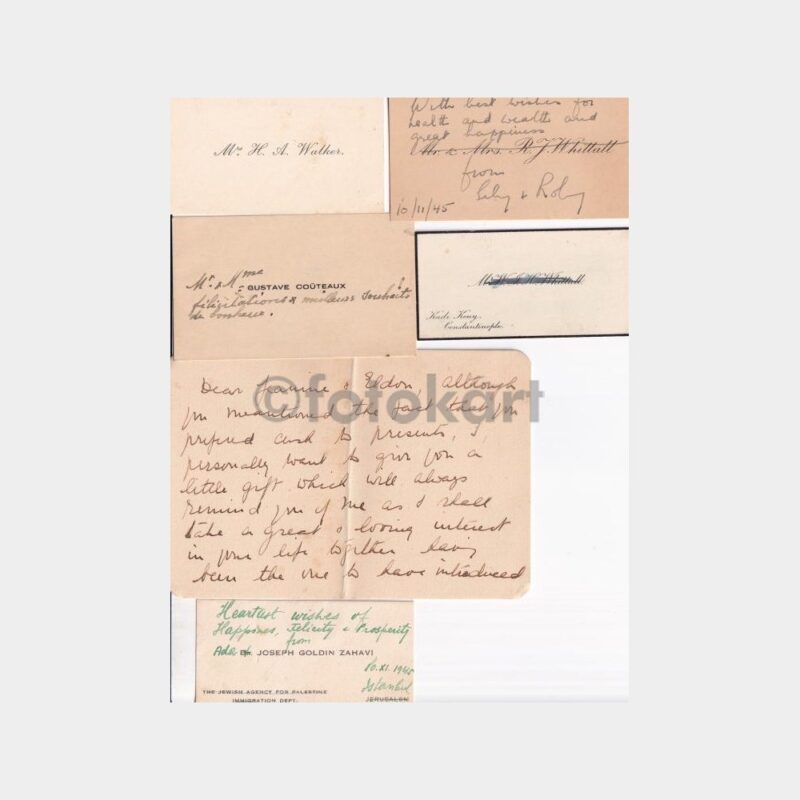 Mr. H. A. Walker.
With best wishes for
health and wealth and
great happiness
Mr. & Mrs. R. J. Whittall
from
10/11/45
Mr. & Mme
GUSTAVE COÛTEUX
félicitations & meilleurs souhaits
de bonheur.
Kadi Keuy.
Constantinople.
©fotokart
Dear Jeanine & Eldon, Although
you meantioned the fact that you
prefered cash to presents, I,
personally want to give you a
little gift which will always
remind you of me as I shall
take a great & loving interest
in your life together having
been the one to have introduced
Heartiest wishes of
Happiness, Felicity & Prosperity
from
Ada & Dr. JOSEPH GOLDIN ZAHAVI
10.XI.1945
Istanbul
THE JEWISH AGENCY FOR PALESTINE
IMMIGRATION DEPT.
JERUSALEM